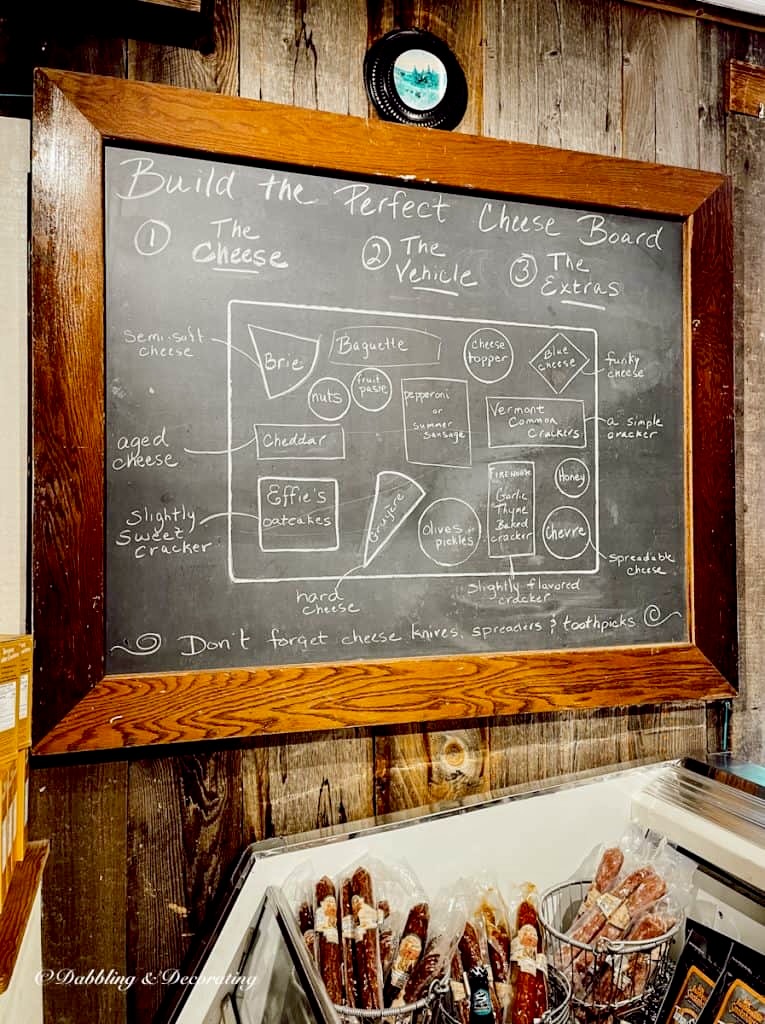 Build the Perfect Cheese Board
1 The Cheese
2 The Vehicle
3 The Extras
semi-soft
cheese
Brie
Baguette
cheese
topper
Blue
cheese
funky
cheese
nuts
fruit
paste
pepperoni
or
summer
sausage
Vermont
Common
Crackers
a simple
cracker
aged
cheese
Cheddar
Effie's
oatcakes
slightly
sweet
cracker
Gruyere
hard
cheese
Olives or
pickles
Firehook
Garlic
Thyme
Baked
cracker
slightly flavored
cracker
Honey
Chevre
spreadable
cheese
Don't forget cheese knives, spreaders & toothpicks
©Dabbling & Decorating